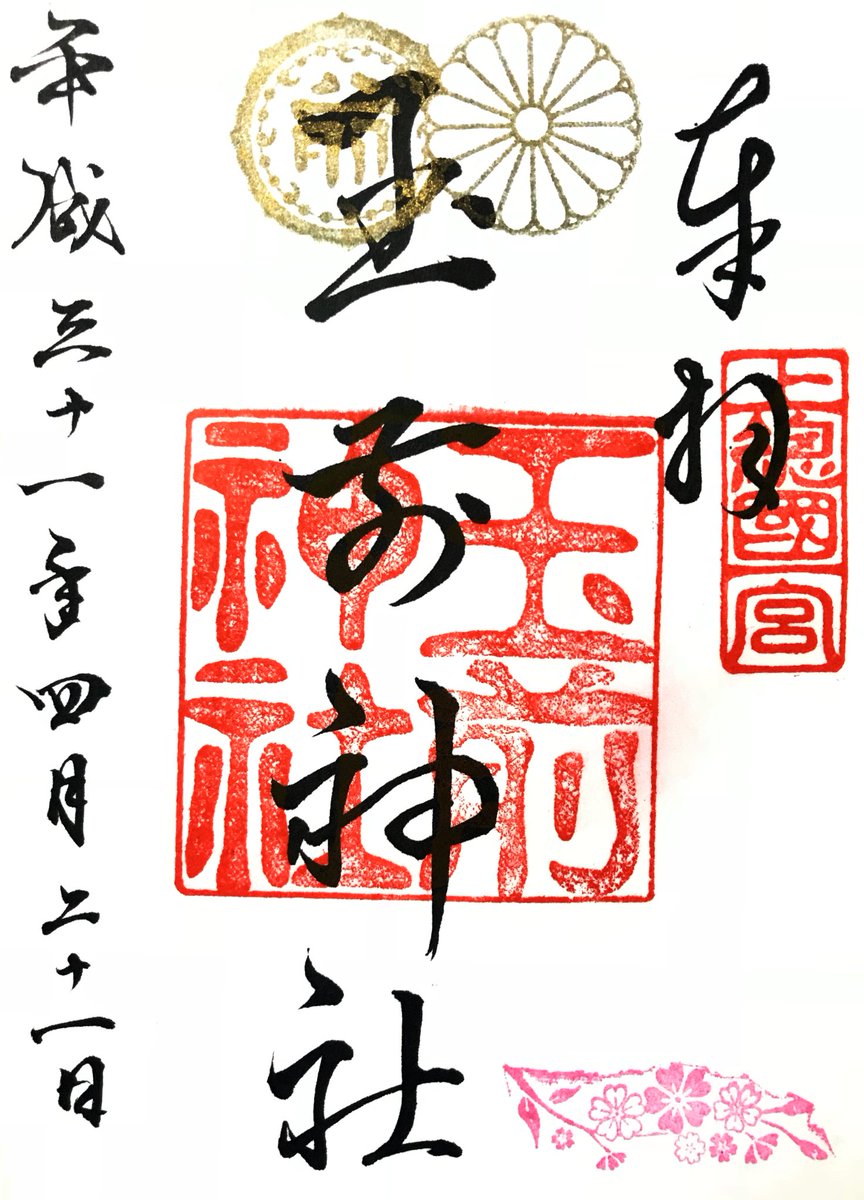 奉拝
上總國一宮
玉前神社
玉前神社
平成三十一年四月二十一日